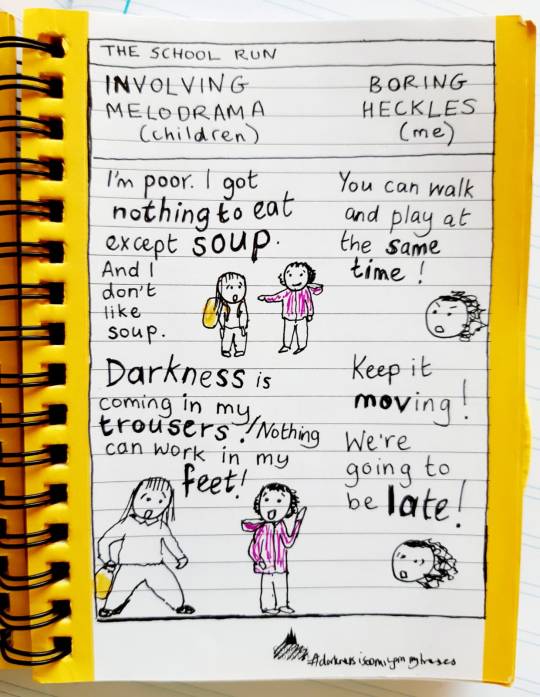 THE SCHOOL RUN
INVOLVING
MELODRAMA
(children)
BORING
HECKLES
(me)
I'm poor. I got
nothing to eat
except soup.
And I
don't
like
soup.
You can walk
and play at
the same
time!
Darkness is
coming in my
trousers! Nothing
can work in my
feet!
Keep it
moving!
We're
going to
be late!